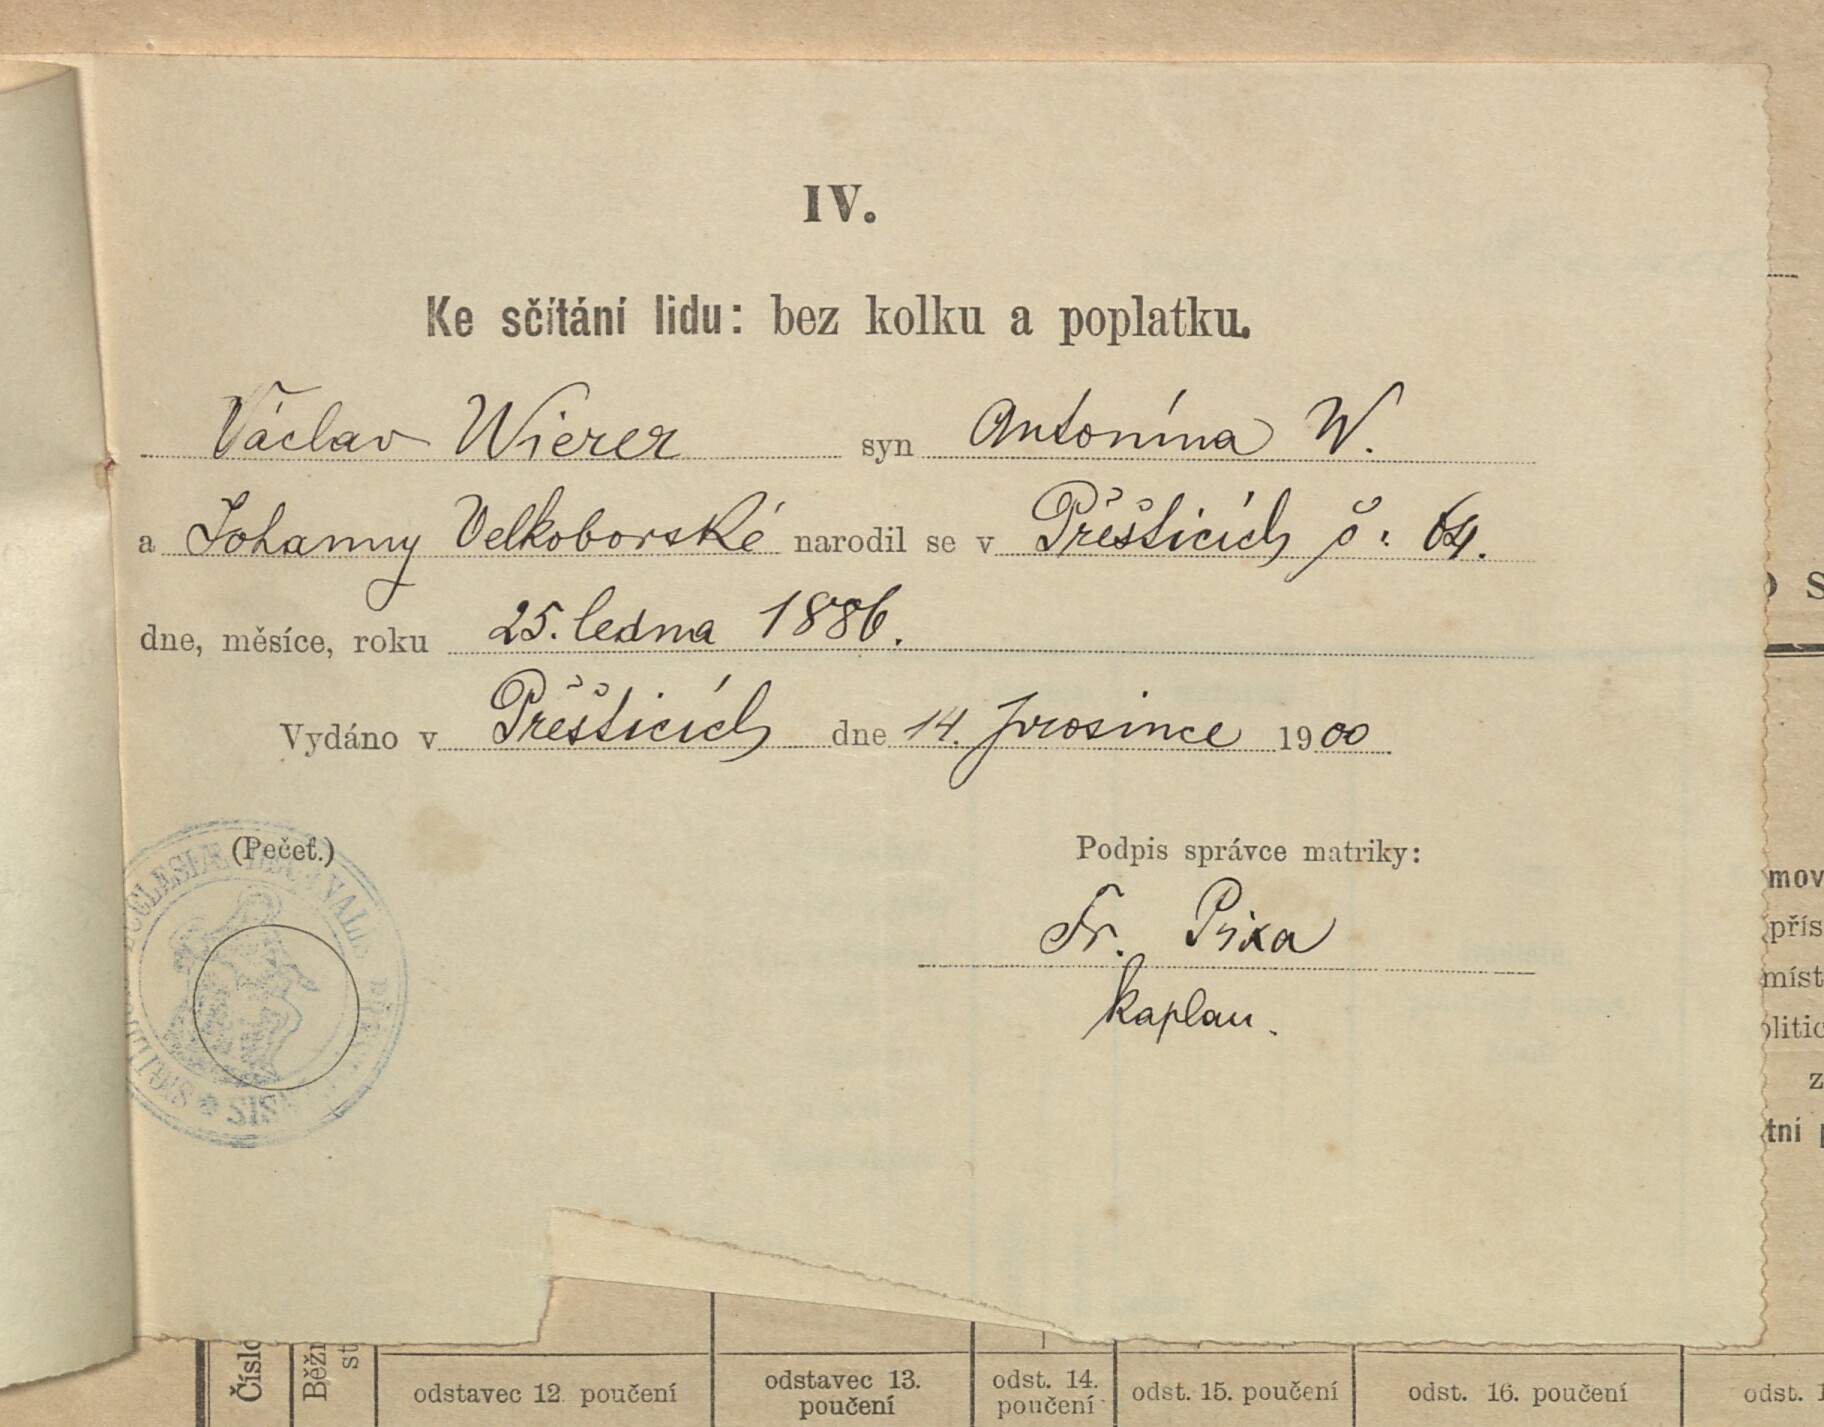 IV.
Ke sčítání lidu: bez kolku a poplatku.
Václav Wierer syn Antonína W.
a Johanny Velkoborské narodil se v Přěšticích č. 64.
dne, měsíce, roku 25. ledna 1886.
Vydáno v Přěšticích dne 14. prosince 1900
(Pečeť.)
Podpis správce matriky:
Fr. Pixa
kaplan.
SIGILLUM ECCLESIÆ
Číslo
Běžn
st
odstavec 12. poučení
odstavec 13. poučení
odst. 14. poučení
odst. 15. poučení
odst. 16. poučení
odst. 1
o s
mov
přís
míst
olitic
z
tní p